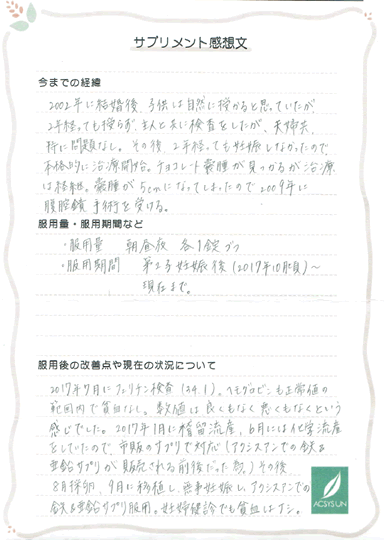 サプリメント感想文
今までの経緯
2002年に結婚後、子供は自然に授かると思っていたが、
2年経っても授らず、主人と共に検査をしたが、夫婦共、
特に問題なし。その後、2年経っても妊娠しなかったので
本格的に治療開始。チョコレート嚢腫が見つかるが治療
は継続。嚢腫が5cmになってしまったので2009年に
腹腔鏡手術を受ける。
服用量・服用期間など
・服用量 朝昼夜 各1錠ずつ
・服用期間 第2子妊娠後(2017年10月頃)～
現在まで。
服用後の改善点や現在の状況について
2017年7月にフェリチン検査(34.1)。ヘモグロビンも正常値の
範囲内で貧血なし。数値は良くもなく悪くもなくという
感じでした。2017年1月に稽留流産、6月には化学流産
をしていたので、市販のサプリで対応(アクシスアンでの鉄&
亜鉛サプリが販売される前後だった為。)その後
8月採卵、9月に移植し、無事妊娠し、アクシスアンでの
鉄&亜鉛サプリ服用。妊婦健診でも貧血はナシ。
ACSYSUN